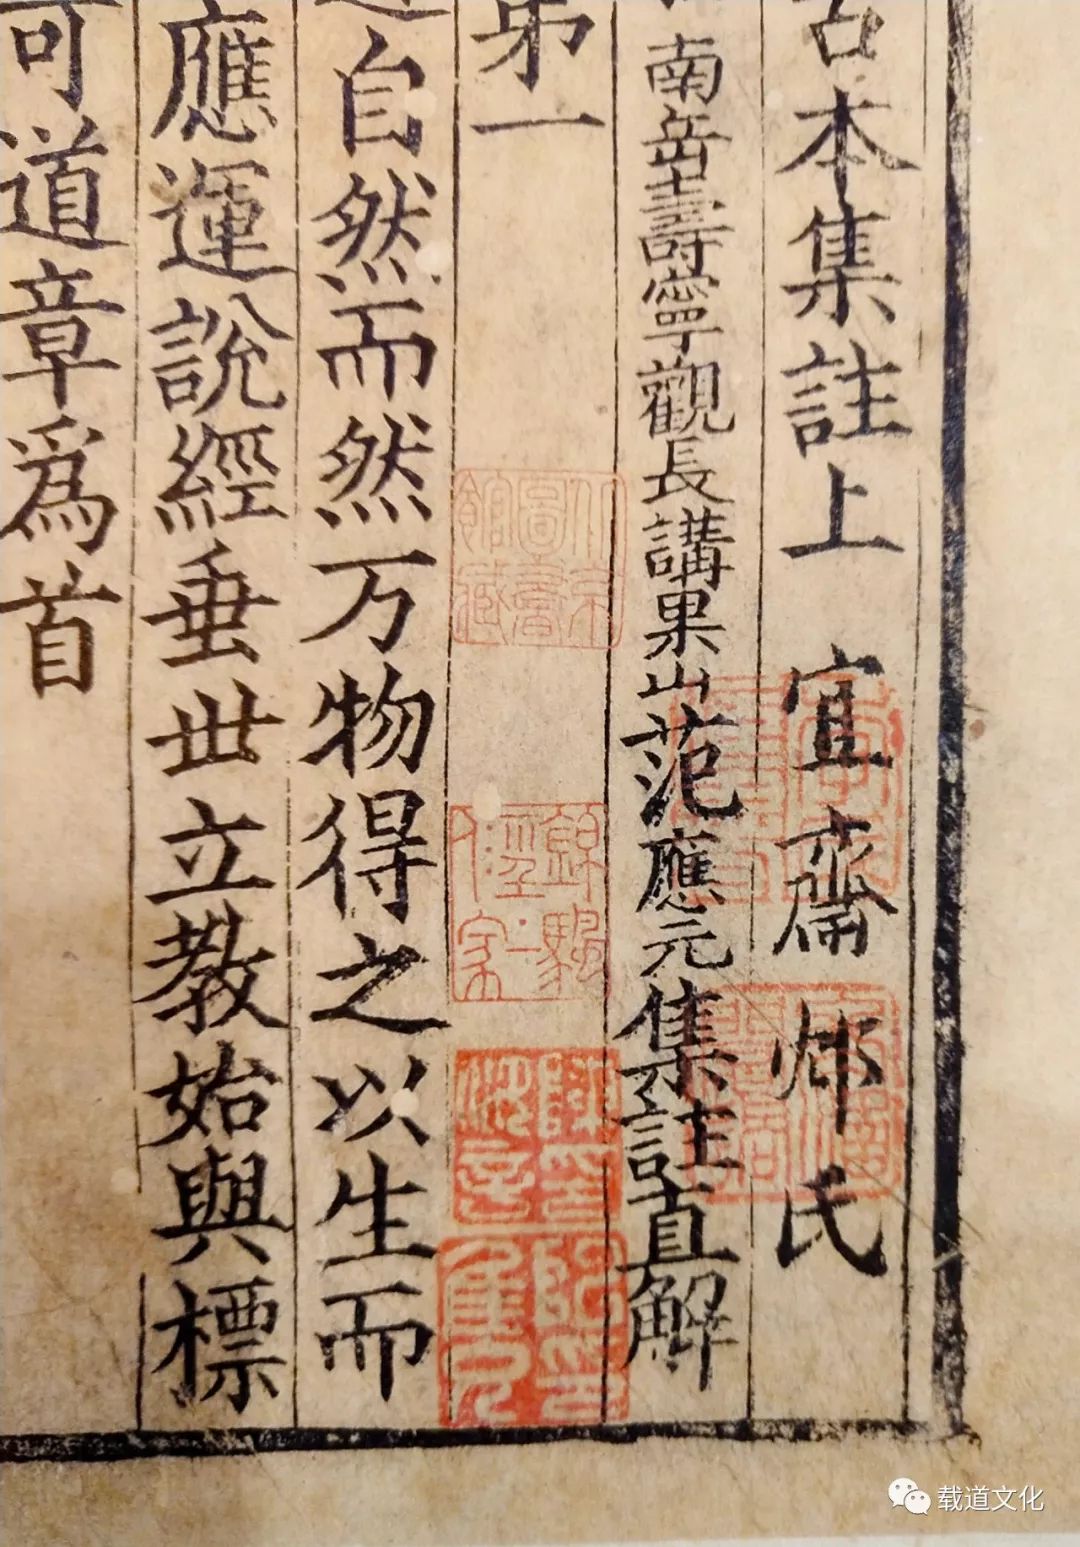 古本集註上 宜齋 邩氏
南岳壽寧觀長講果山范應元集註直解
第一
自然而然万物得之以生而
應運說經垂世立教始與標
可道章爲首
载道文化